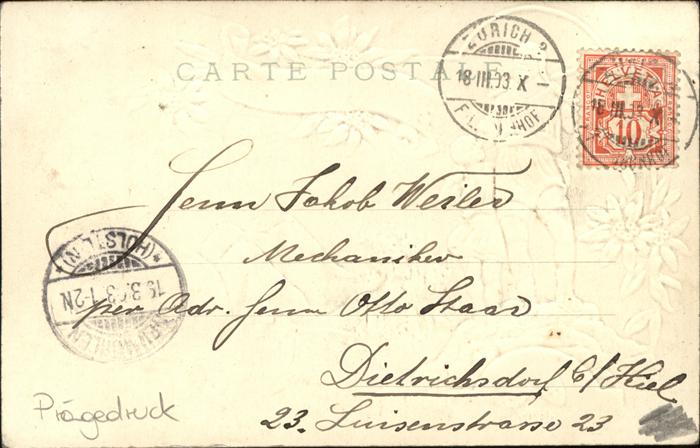 CARTE POSTALE
ZÜRICH 2
18.III.03.X–
HELVETIA
10
Herrn Jakob Weiler
Mechaniker
per Adr. Herrn Otto Staar
Dietrichsdorf b/Kiel
23. Luisenstrasse 23
(HOLSTEIN)
19.3.03.1-2N
Prägedruck